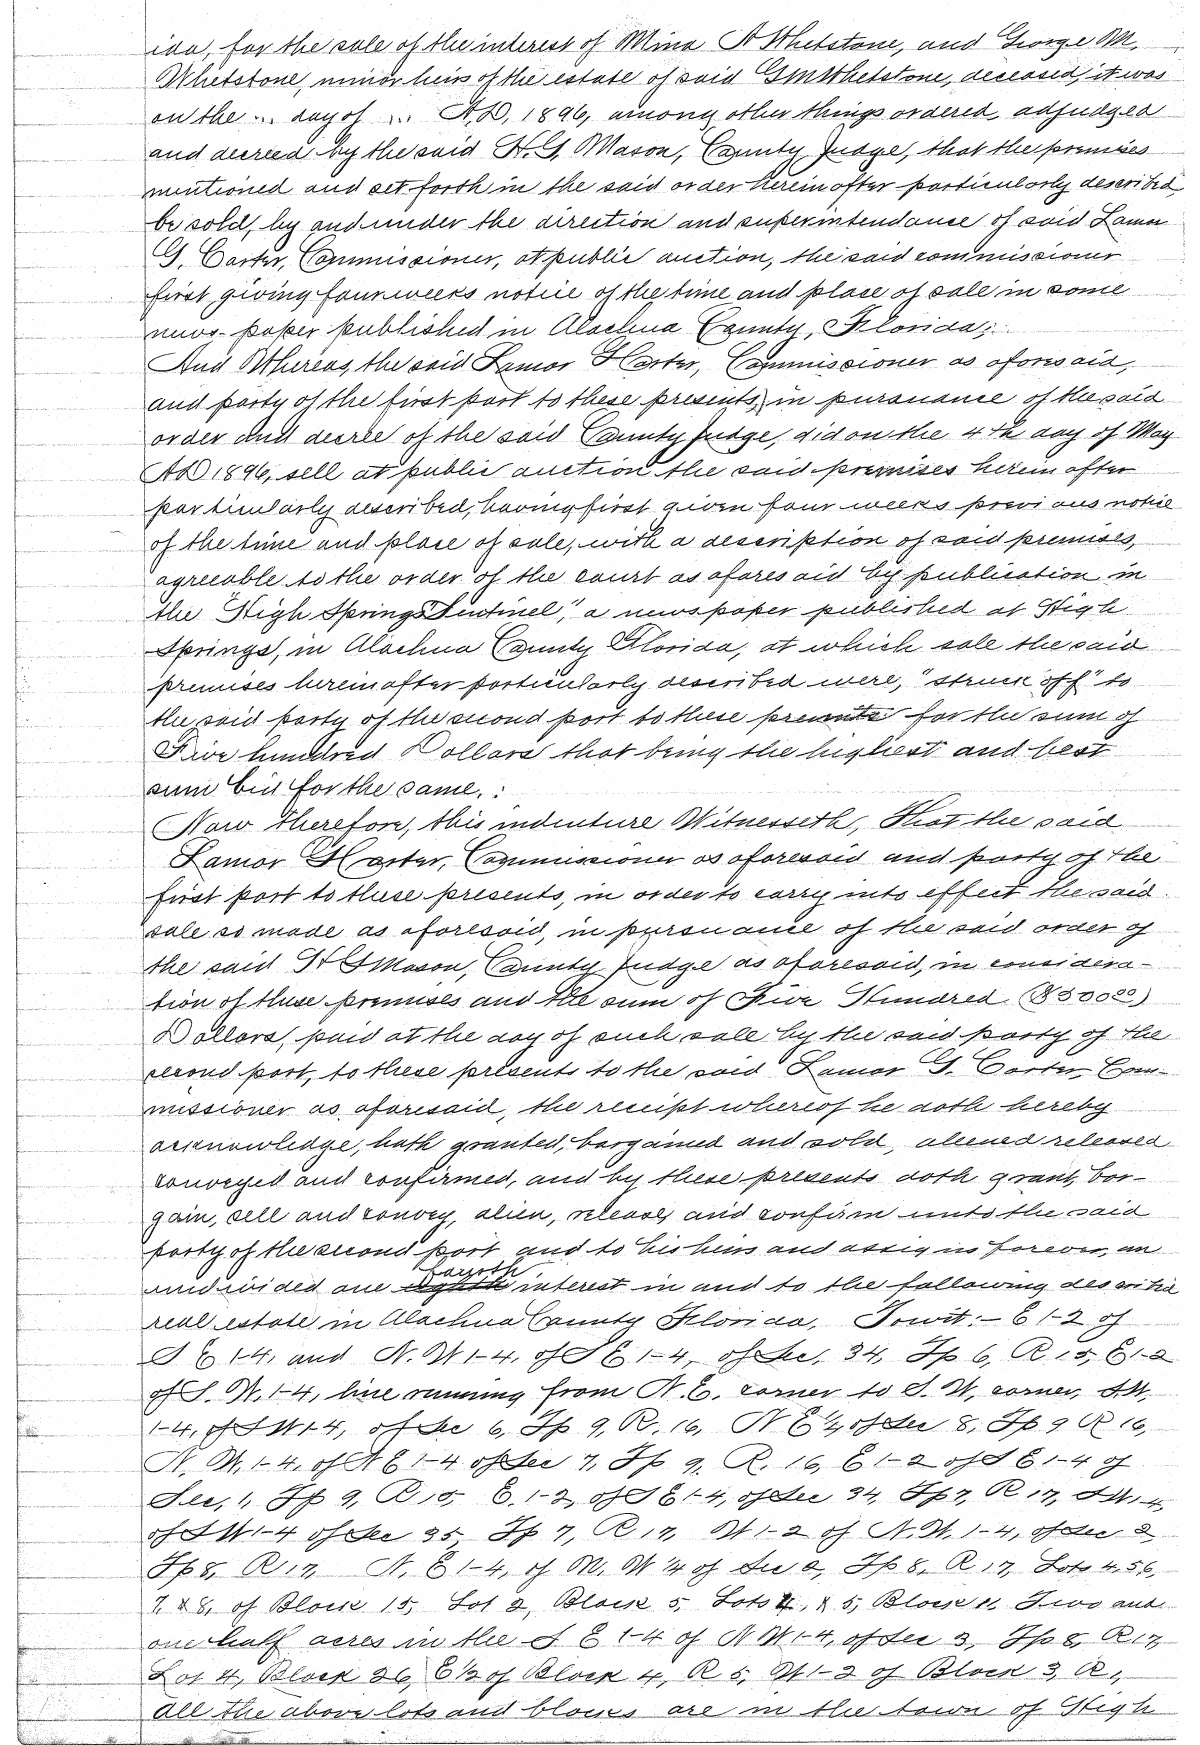 ida, for the sale of the interest of Mina A Whetstone, and George M.
Whetstone, minor heirs of the estate of said G M Whetstone, deceased, it was
on the ... day of ... A.D, 1896, among other things ordered, adjudged
and decreed by the said H. G. Mason, County Judge, that the premises
mentioned and set forth in the said order hereinafter particularly described,
be sold, by and under the direction and superintendance of said Lamar
G. Carter, Commissioner, at public auction, the said commissioner
first giving four weeks notice of the time and place of sale in some
news-paper published in Alachua County, Florida;
And Whereas, the said Lamar G Carter, Commissioner as aforesaid,
and party of the first part to these presents, in pursuance of the said
order and decree of the said County Judge, did on the 4th day of May
A D 1896, sell at public auction the said premises herein after
particularly described, having first given four weeks previous notice
of the time and place of sale, with a description of said premises,
agreeable to the order of the court as aforesaid by publication in
the "High Springs Sentinel," a newspaper published at High
Springs, in Alachua County Florida, at which sale the said
premises hereinafter particularly described were, "struck off" to
the said party of the second part to these presents for the sum of
Five hundred Dollars that being the highest and best
sum bid for the same. :
Now therefore, this indenture Witnesseth, That the said
Lamar G Carter, Commissioner as aforesaid and party of the
first part to these presents, in order to carry into effect the said
sale so made as aforesaid, in pursuance of the said order of
the said H G Mason, County Judge as aforesaid, in considera-
tion of these premises and the sum of Five Hundred ($500.00)
Dollars, paid at the day of such sale by the said party of the
second part, to these presents to the said Lamar G. Carter Com-
missioner as aforesaid, the receipt whereof he doth hereby
acknowledge, hath granted, bargained and sold, aliened released
conveyed and confirmed, and by these presents doth grant, bar-
gain, sell and convey, alien, release, and confirm unto the said
party of the second part and to his heirs and assigns forever, an
undivided one fourth interest in and to the following described
real estate in Alachua County Florida, Towit:- E 1-2 of
S E 1-4, and N. W 1-4, of S E 1-4, of Sec, 34, Tp 6, R. 15, E 1-2
of S. W. 1-4, line running from N. E. corner to S. W. corner, S.W.
1-4, of S W 1-4, of Sec 6, Tp 9, R. 16, N E 1/4 of Sec 8, Tp 9 R 16,
N. W, 1-4, of N E 1-4 of Sec 7, Tp 9, R. 16, E 1-2 of S E 1-4 of
Sec, 1, Tp 9, R 15 E. 1-2, of S E 1-4, of Sec 34, Tp 7, R 17, S W 1-4
of S W 1-4 of Sec 35 Tp 7, R 17, W 1-2 of N. W. 1-4, of Sec 2
Tp 8, R 17 N. E 1-4, of N. W 1/4 of Sec 2, Tp 8, R 17, Lots 4, 5 6,
7, & 8, of Block 15, Lot 2, Block 5, Lots 4, & 5, Block 11. Two and
one half acres in the S E 1-4 of N W 1-4, of Sec 3, Tp 8, R 17,
Lot 4, Block 26, E 1/2 of Block 4, R 5, W 1-2 of Block 3, R,
all the above lots and blocks are in the town of High